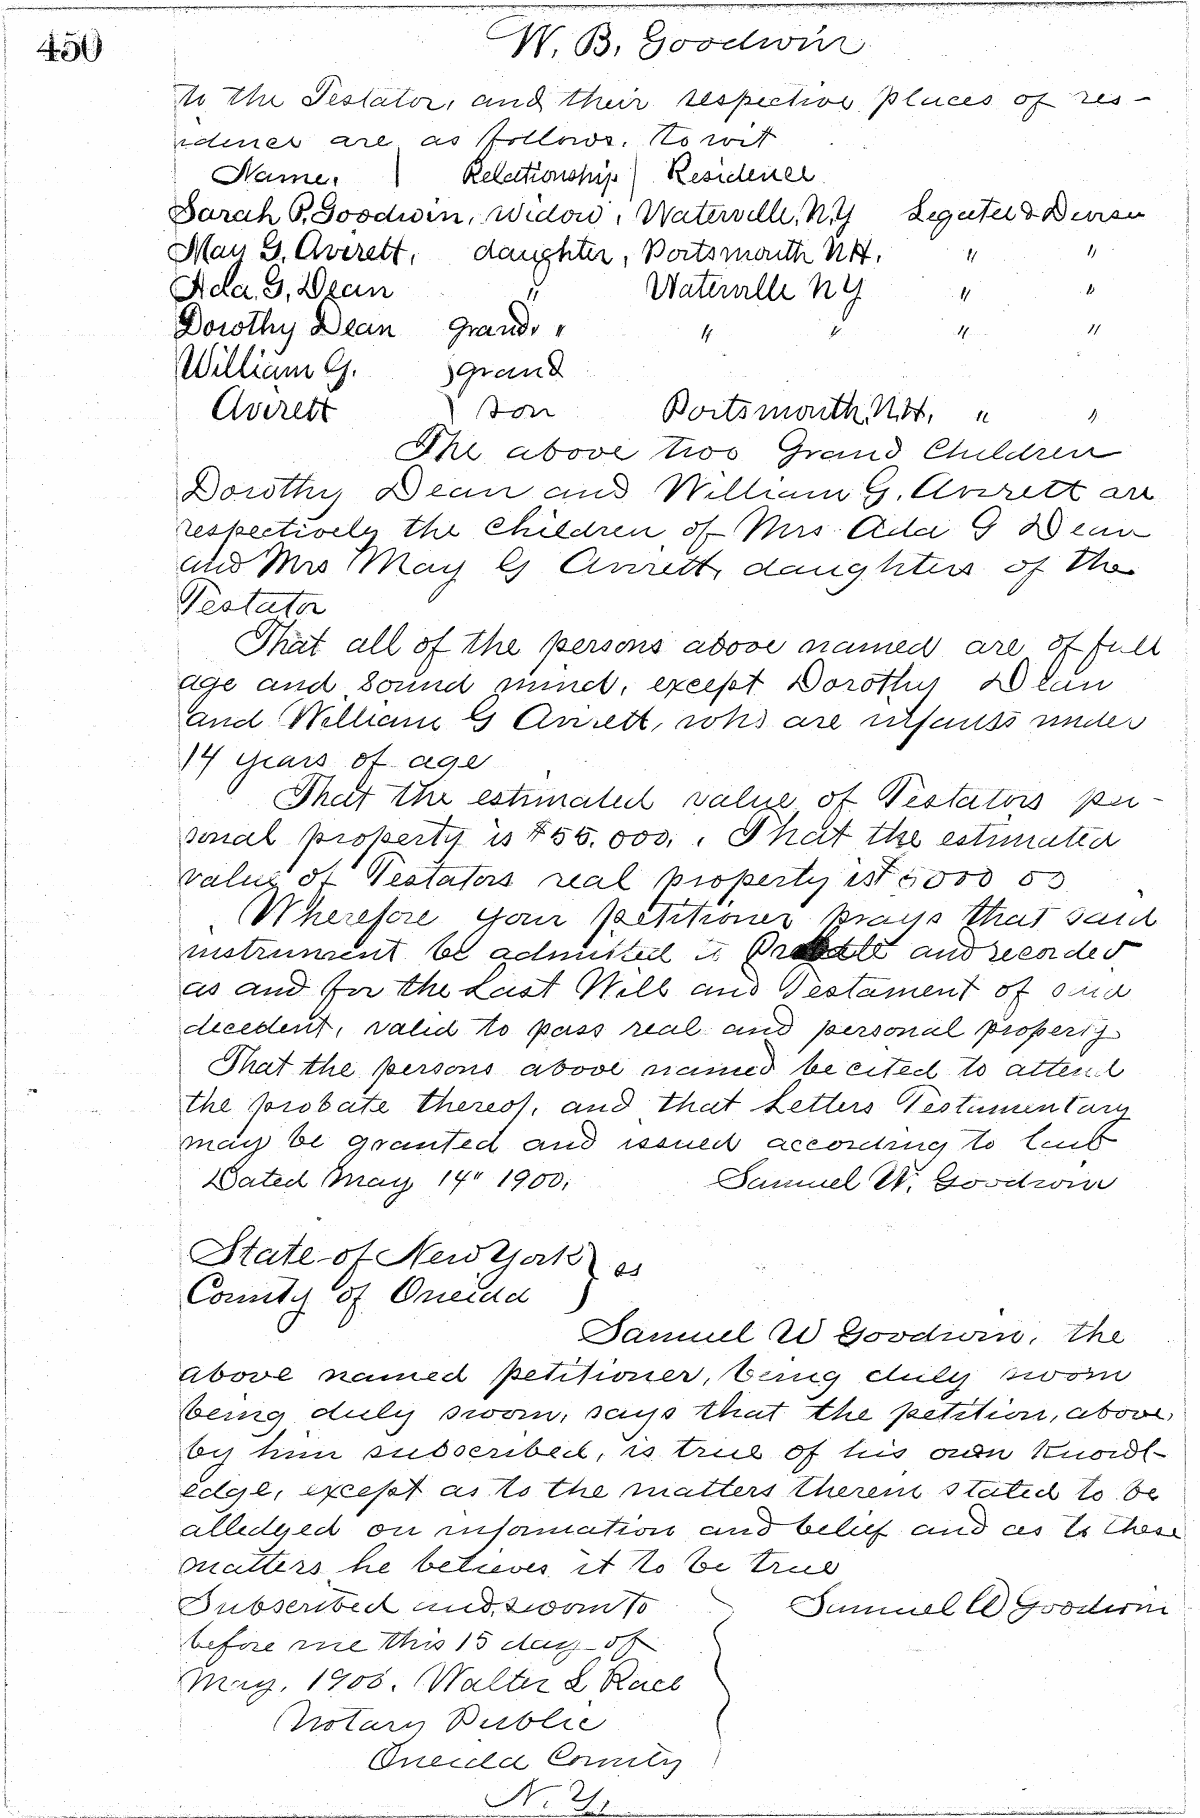 450
W. B. Goodwin
to the Testator, and their respective places of res-
idence are as follows, to wit
Name, | Relationship | Residence
Sarah P. Goodwin, Widow, Waterville, N.Y Legatee & Devisee
May G. Averett, daughter, Portsmouth N.H. " "
Ada. G. Dean " Waterville N Y " "
Dorothy Dean grand. " " " " "
William G. } grand
Averett } son Portsmouth, N.H. " "
The above two Grand Children
Dorothy Dean and William G. Averett are
respectively the children of Mrs Ada G Dean
and Mrs May G Averett, daughters of the
Testator
That all of the persons above named are of full
age and sound mind, except Dorothy Dean
and William G Averett, who are infants under
14 years of age
That the estimated value of Testators per-
sonal property is $55.000. . That the estimated
value of Testators real property is $ 000 00
Wherefore your petitioner prays that said
instrument be admitted to Probate and recorded
as and for the Last Will and Testament of said
decedent, valid to pass real and personal property
That the persons above named be cited to attend
the probate thereof, and that Letters Testamentary
may be granted and issued according to law
Dated May 14" 1900, Samuel W. Goodwin
State of New York } ss
County of Oneida }
Samuel W Goodwin, the
above named petitioner, being duly sworn
being duly sworn, says that the petition, above,
by him subscribed, is true of his own knowl-
edge, except as to the matters therein stated to be
alledged on information and belief and as to these
matters he believes it to be true
Subscribed and sworn to } Samuel W Goodwin
before me this 15 day of
May, 1900. Walter L Race
Notary Public
Oneida County
N. Y.